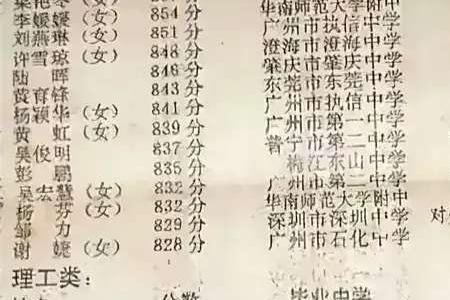 李媛媛（女） 854分
刘燕琳（女） 851分 广州市执信中学
许雪琼（女） 848分 澄海市澄海中学
陆 晖 846分 肇庆市肇庆中学
黄育锋 843分 东莞市东莞中学
杨颖华（女） 841分 广州市执信中学
黄 虹（女） 839分 广州市第一中学
吴俊明 837分 普宁市第二中学
彭 鹏 835分 梅州市东山中学
吴宏慧（女） 832分 江市第二中学
杨 芬（女） 832分 华南师范大学附中
邹 力 829分 深圳市深圳中学
谢 婕（女） 828分 广州市石化中学
对
理工类：
分数 毕业中学